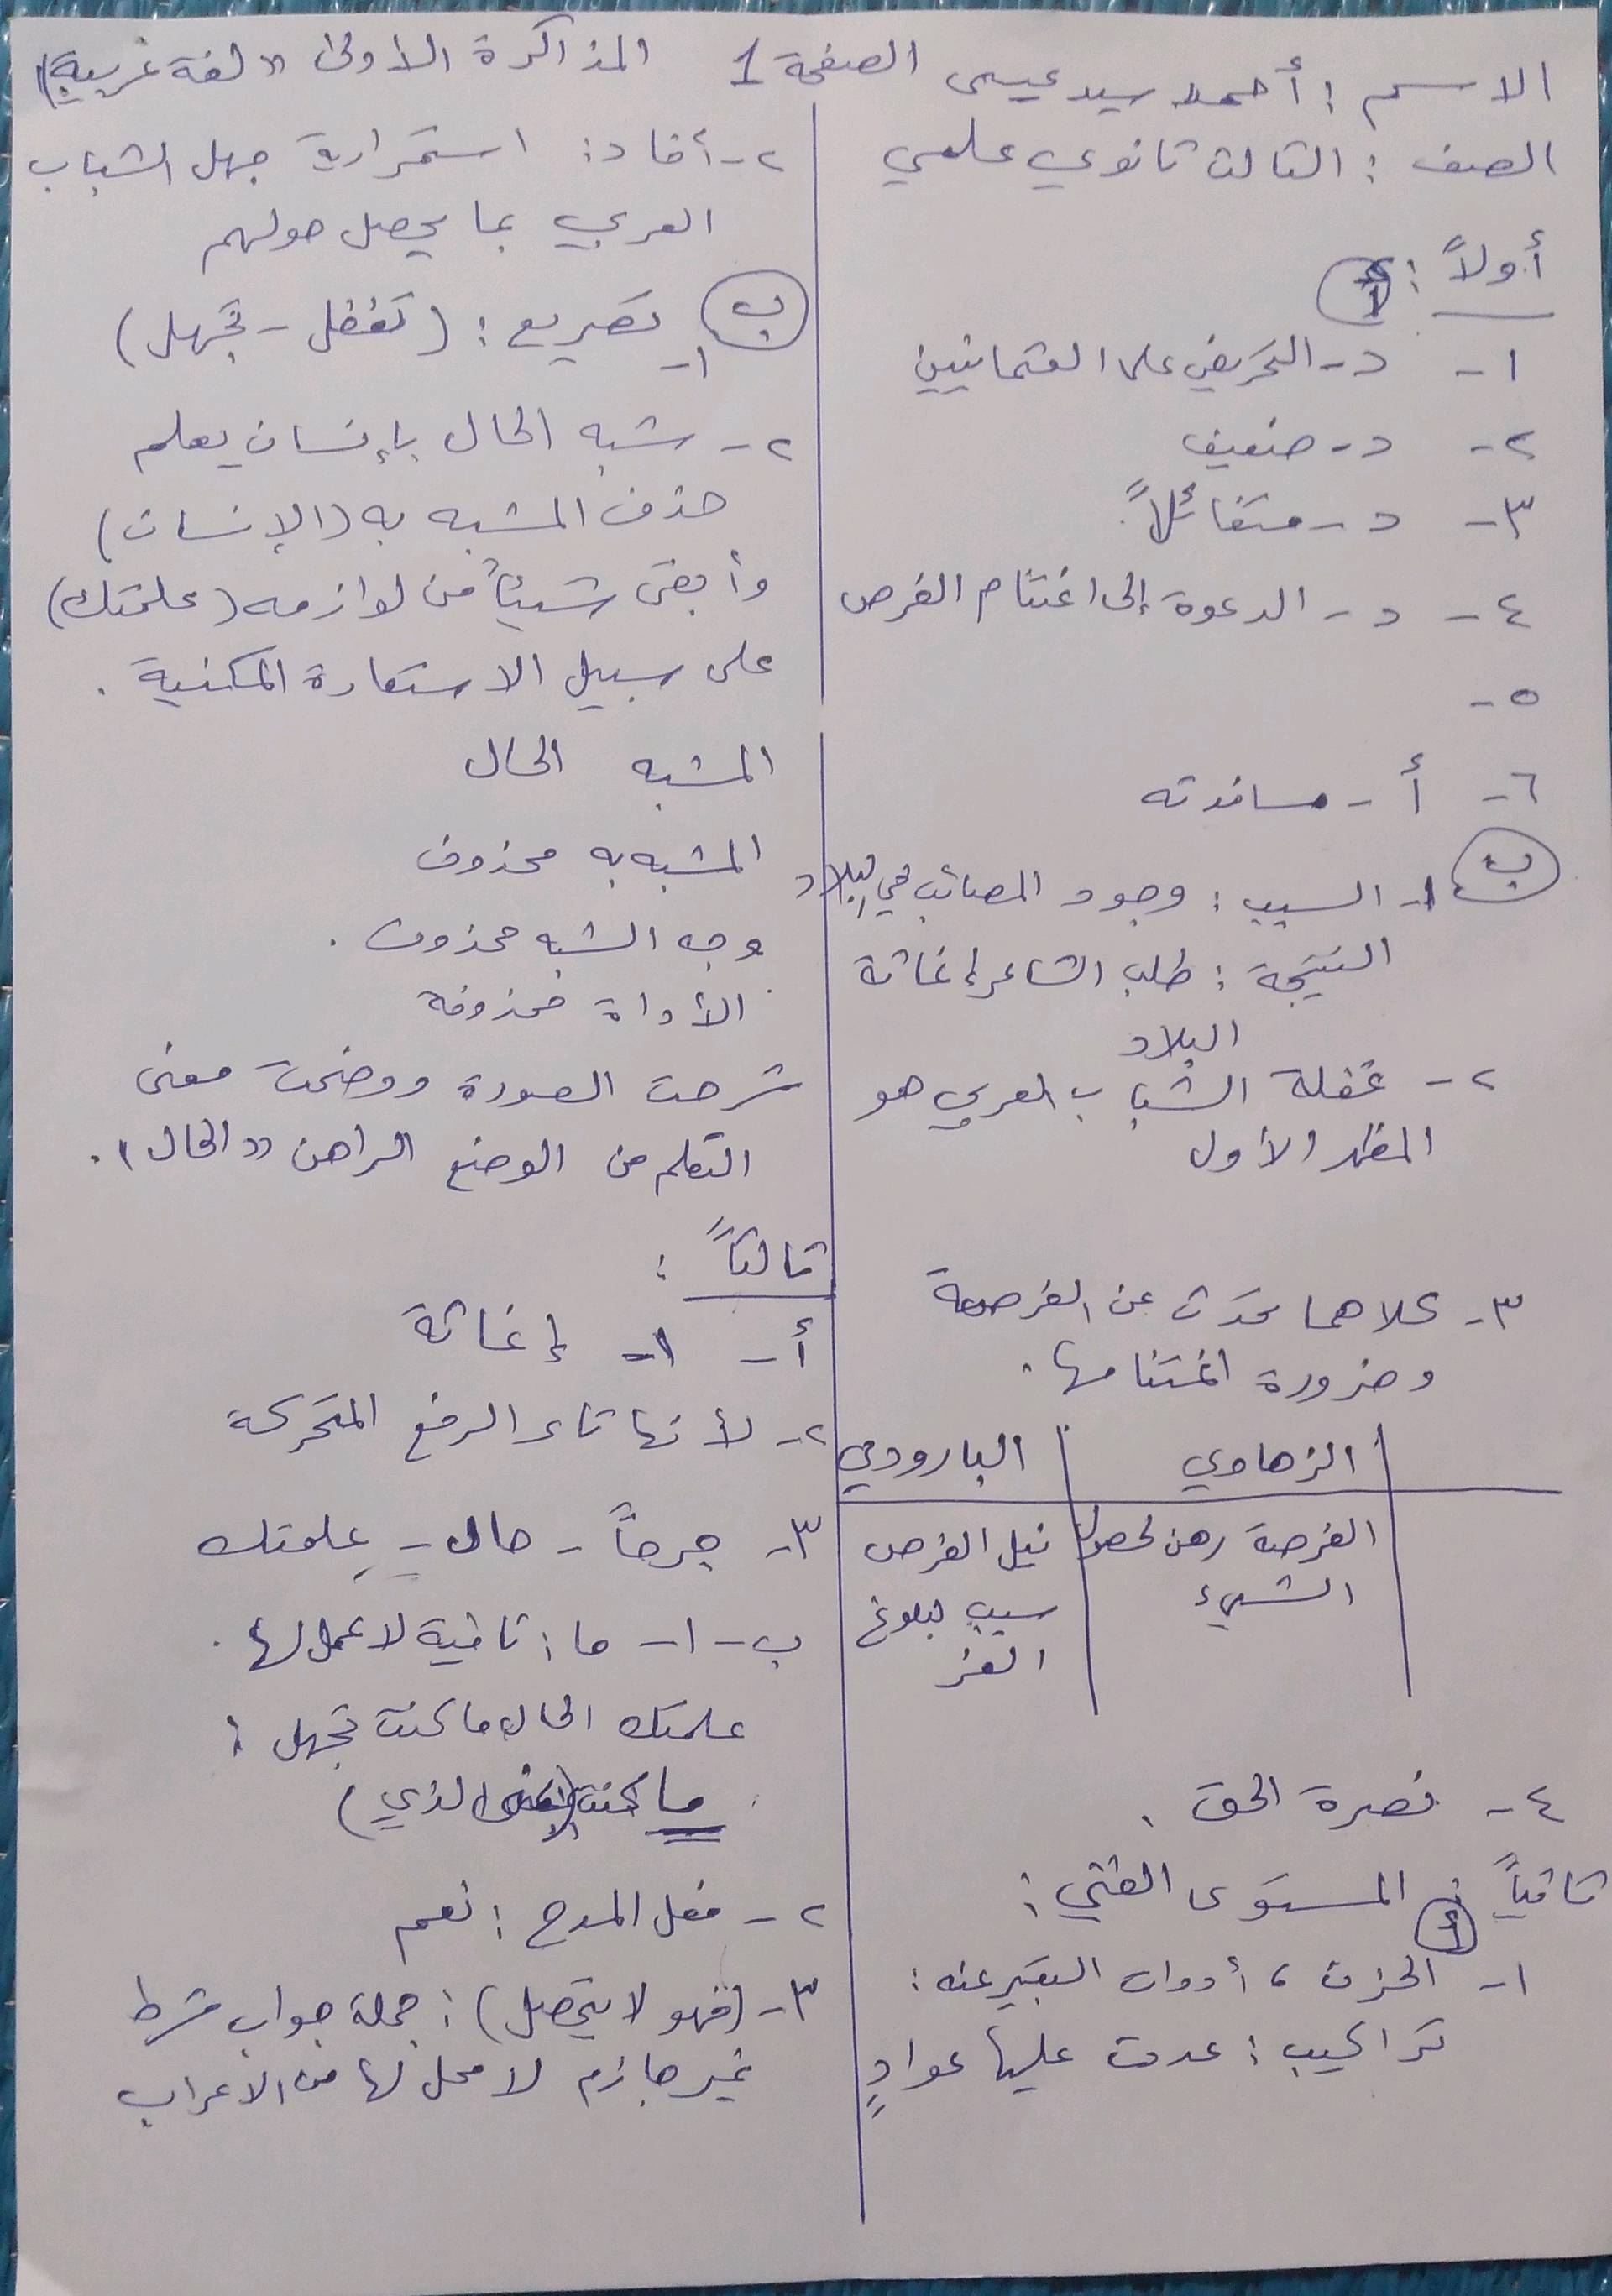 الاسم : أحمد سيد عيسى الصفحة 1 المذاكرة الأولى « لغة عربية »
الصف : الثالث ثانوي علمي
أولاً : أ
١- د- التحريض على العثمانيين
٢- د- ضعيف
٣- د- متفائلاً.
٤- د- الدعوة إلى اغتنام الفرص
٥-
٦- أ- مساندته
ب ١- السبب : وجود المصائب في البلاد
النتيجة : طلب الشاعر إغاثة
البلاد
٢- غفلة الشباب العربي هو
المظهر الأول
٣- كلاهما تحدث عن الفرصة
وضرورة اغتنامها .
الزهاوي | البارودي
الفرصة رهن لحصول | نيل الفرص
الشيء | سبب لبلوغ
العز
٤- نصرة الحق .
ثانياً : المستوى الفني :
أ
١- الحزن ، أدوات التعبير عنه :
تراكيب : عدت عليها عوادٍ
٢- أفاد : استمرارية جهل الشباب
العربي بما يحصل حولهم
ب ١- تصريع : ( تغفل - تجهل )
٢- شبه الحال بإنسان يعلم
حذف المشبه به ( الإنسان )
وأبقى شيئاً من لوازمه ( علمتك )
على سبيل الاستعارة المكنية .
المشبه الحال
المشبه به محذوف
وجه الشبه محذوف .
الأداة محذوفة
شرحت الصورة ووضحت معنى
التعلم من الوضع الراهن « الحال » .
ثالثاً :
أ- ١- إغاثة
٢- لأنها تاء الرفع المتحركة
٣- جرحاً - حال - علمتك
ب- ١- ما : نافية لا عمل لها .
علمتك الحال ما كنت تجهل :
ما كنت ( الذي )
٢- فعل المدح : نعم
٣- ( فهو لا يتحصل ) : جملة جواب شرط
غير جازم لا محل لها من الاعراب